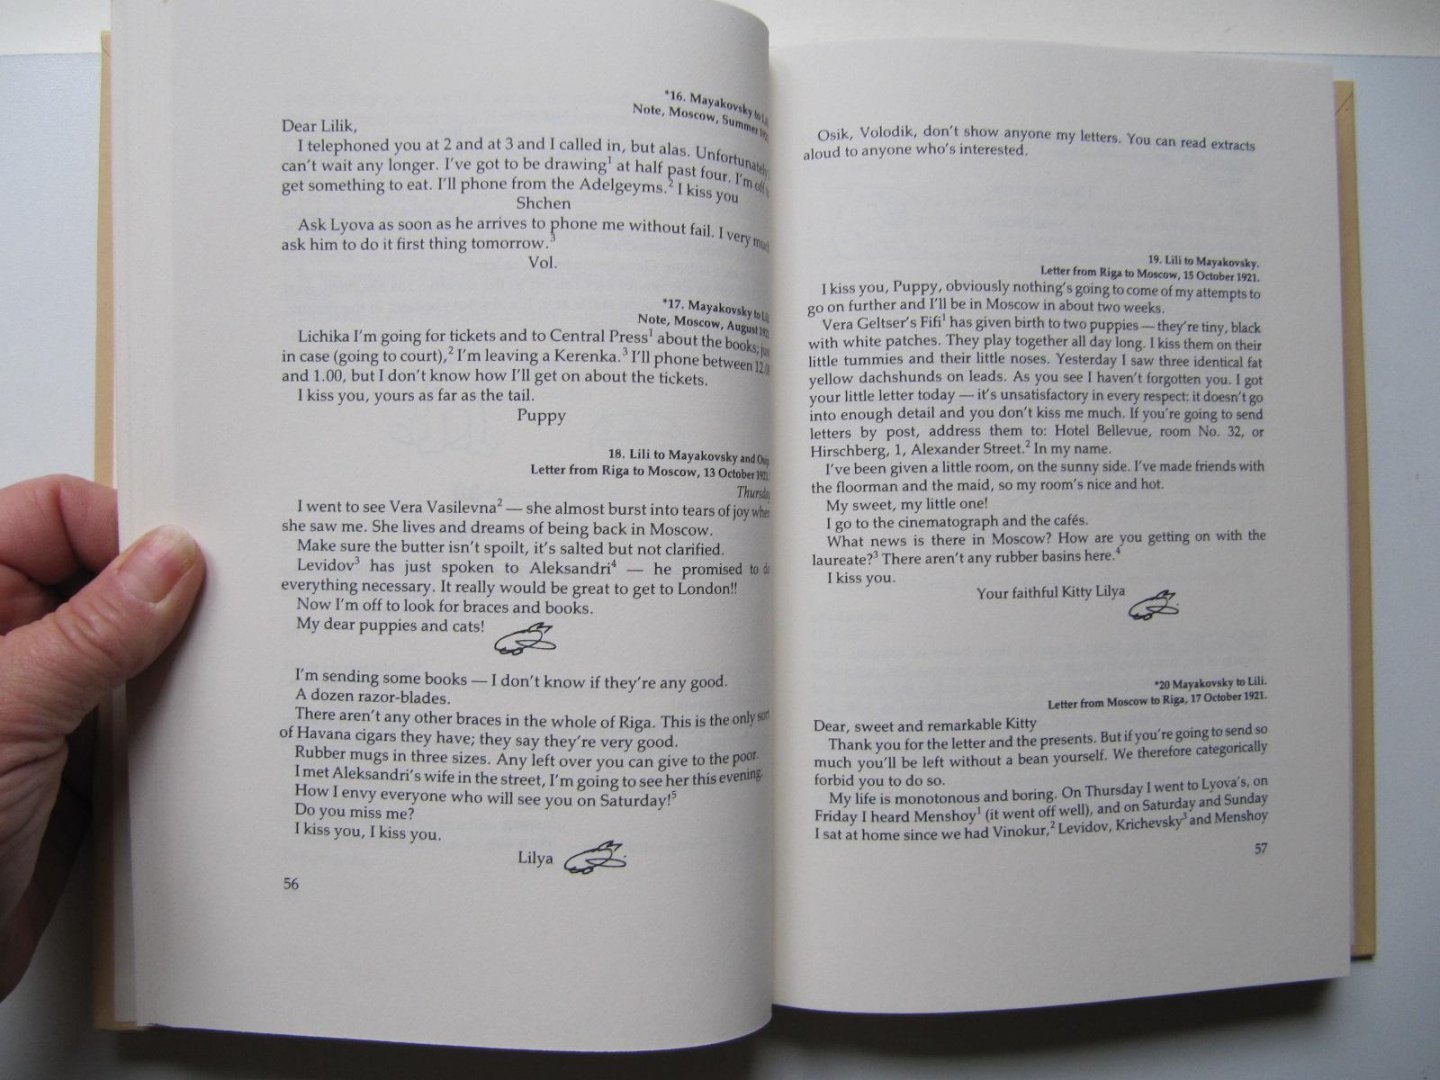 *16. Mayakovsky to
Note, Moscow, Summer
Dear Lilik,
I telephoned you at 2 and at 3 and I called in, but alas. Unfortunately
can't wait any longer. I've got to be drawing¹ at half past four. I'm off
get something to eat. I'll phone from the Adelgeyms.² I kiss you
Shchen
Ask Lyova as soon as he arrives to phone me without fail. I very much
ask him to do it first thing tomorrow.³
Vol.
*17. Mayakovsky to
Note, Moscow, August
Lichika I'm going for tickets and to Central Press¹ about the books; just
in case (going to court),² I'm leaving a Kerenka.³ I'll phone between
and 1.00, but I don't know how I'll get on about the tickets.
I kiss you, yours as far as the tail.
Puppy
18. Lili to Mayakovsky and
Letter from Riga to Moscow, 13 October 1921.
Thursday
I went to see Vera Vasilevna² — she almost burst into tears of joy when
she saw me. She lives and dreams of being back in Moscow.
Make sure the butter isn't spoilt, it's salted but not clarified.
Levidov³ has just spoken to Aleksandri⁴ — he promised to do
everything necessary. It really would be great to get to London!!
Now I'm off to look for braces and books.
My dear puppies and cats!
I'm sending some books — I don't know if they're any good.
A dozen razor-blades.
There aren't any other braces in the whole of Riga. This is the only sort
of Havana cigars they have; they say they're very good.
Rubber mugs in three sizes. Any left over you can give to the poor.
I met Aleksandri's wife in the street, I'm going to see her this evening.
How I envy everyone who will see you on Saturday!⁵
Do you miss me?
I kiss you, I kiss you.
Lilya
56
Osik, Volodik, don't show anyone my letters. You can read extracts
aloud to anyone who's interested.
19. Lili to Mayakovsky.
Letter from Riga to Moscow, 15 October 1921.
I kiss you, Puppy, obviously nothing's going to come of my attempts to
go on further and I'll be in Moscow in about two weeks.
Vera Geltser's Fifi¹ has given birth to two puppies — they're tiny, black
with white patches. They play together all day long. I kiss them on their
little tummies and their little noses. Yesterday I saw three identical fat
yellow dachshunds on leads. As you see I haven't forgotten you. I got
your little letter today — it's unsatisfactory in every respect: it doesn't go
into enough detail and you don't kiss me much. If you're going to send
letters by post, address them to: Hotel Bellevue, room No. 32, or
Hirschberg, 1, Alexander Street.² In my name.
I've been given a little room, on the sunny side. I've made friends with
the floorman and the maid, so my room's nice and hot.
My sweet, my little one!
I go to the cinematograph and the cafés.
What news is there in Moscow? How are you getting on with the
laureate?³ There aren't any rubber basins here.⁴
I kiss you.
Your faithful Kitty Lilya
*20 Mayakovsky to Lili.
Letter from Moscow to Riga, 17 October 1921.
Dear, sweet and remarkable Kitty
Thank you for the letter and the presents. But if you're going to send so
much you'll be left without a bean yourself. We therefore categorically
forbid you to do so.
My life is monotonous and boring. On Thursday I went to Lyova's, on
Friday I heard Menshoy¹ (it went off well), and on Saturday and Sunday
I sat at home since we had Vinokur,² Levidov, Krichevsky³ and Menshoy
57